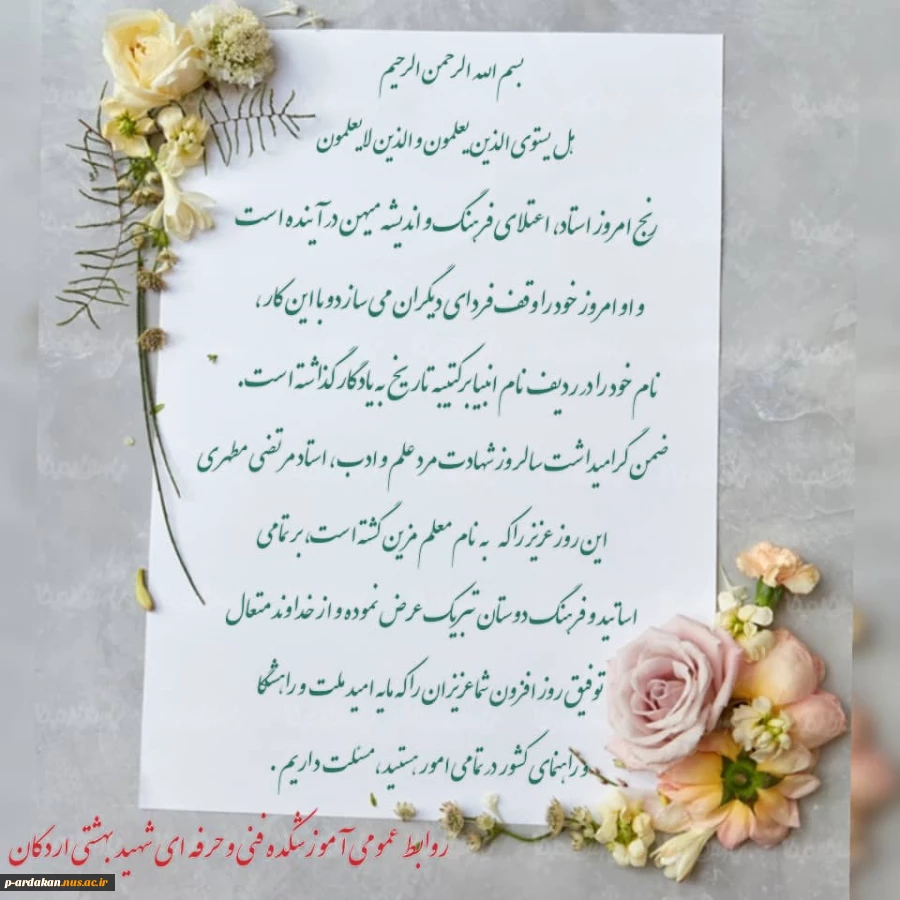 بسم الله الرحمن الرحیم
هل یستوی الذین یعلمون و الذین لایعلمون
رنج امروز استاد، اعتلای فرهنگ و اندیشه میهن در آینده است
و او امروز خود را وقف فردای دیگران می سازد و با این کار،
نام خود را در ردیف نام انبیا بر کتیبه تاریخ به یادگار گذاشته است.
ضمن گرامیداشت سالروز شهادت مرد علم و ادب، استاد مرتضی مطهری
این روز عزیز را که به نام معلم مزین گشته است، بر تمامی
اساتید و فرهنگ دوستان تبریک عرض نموده و از خداوند متعال
توفیق روز افزون شما عزیزان را که مایه امید ملت و راهگشا
و راهنمای کشور در تمامی امور هستید، مسئلت داریم.
روابط عمومی آموزشکده فنی و حرفه ای شهید بهشتی اردکان
p-ardakan.nus.ac.ir